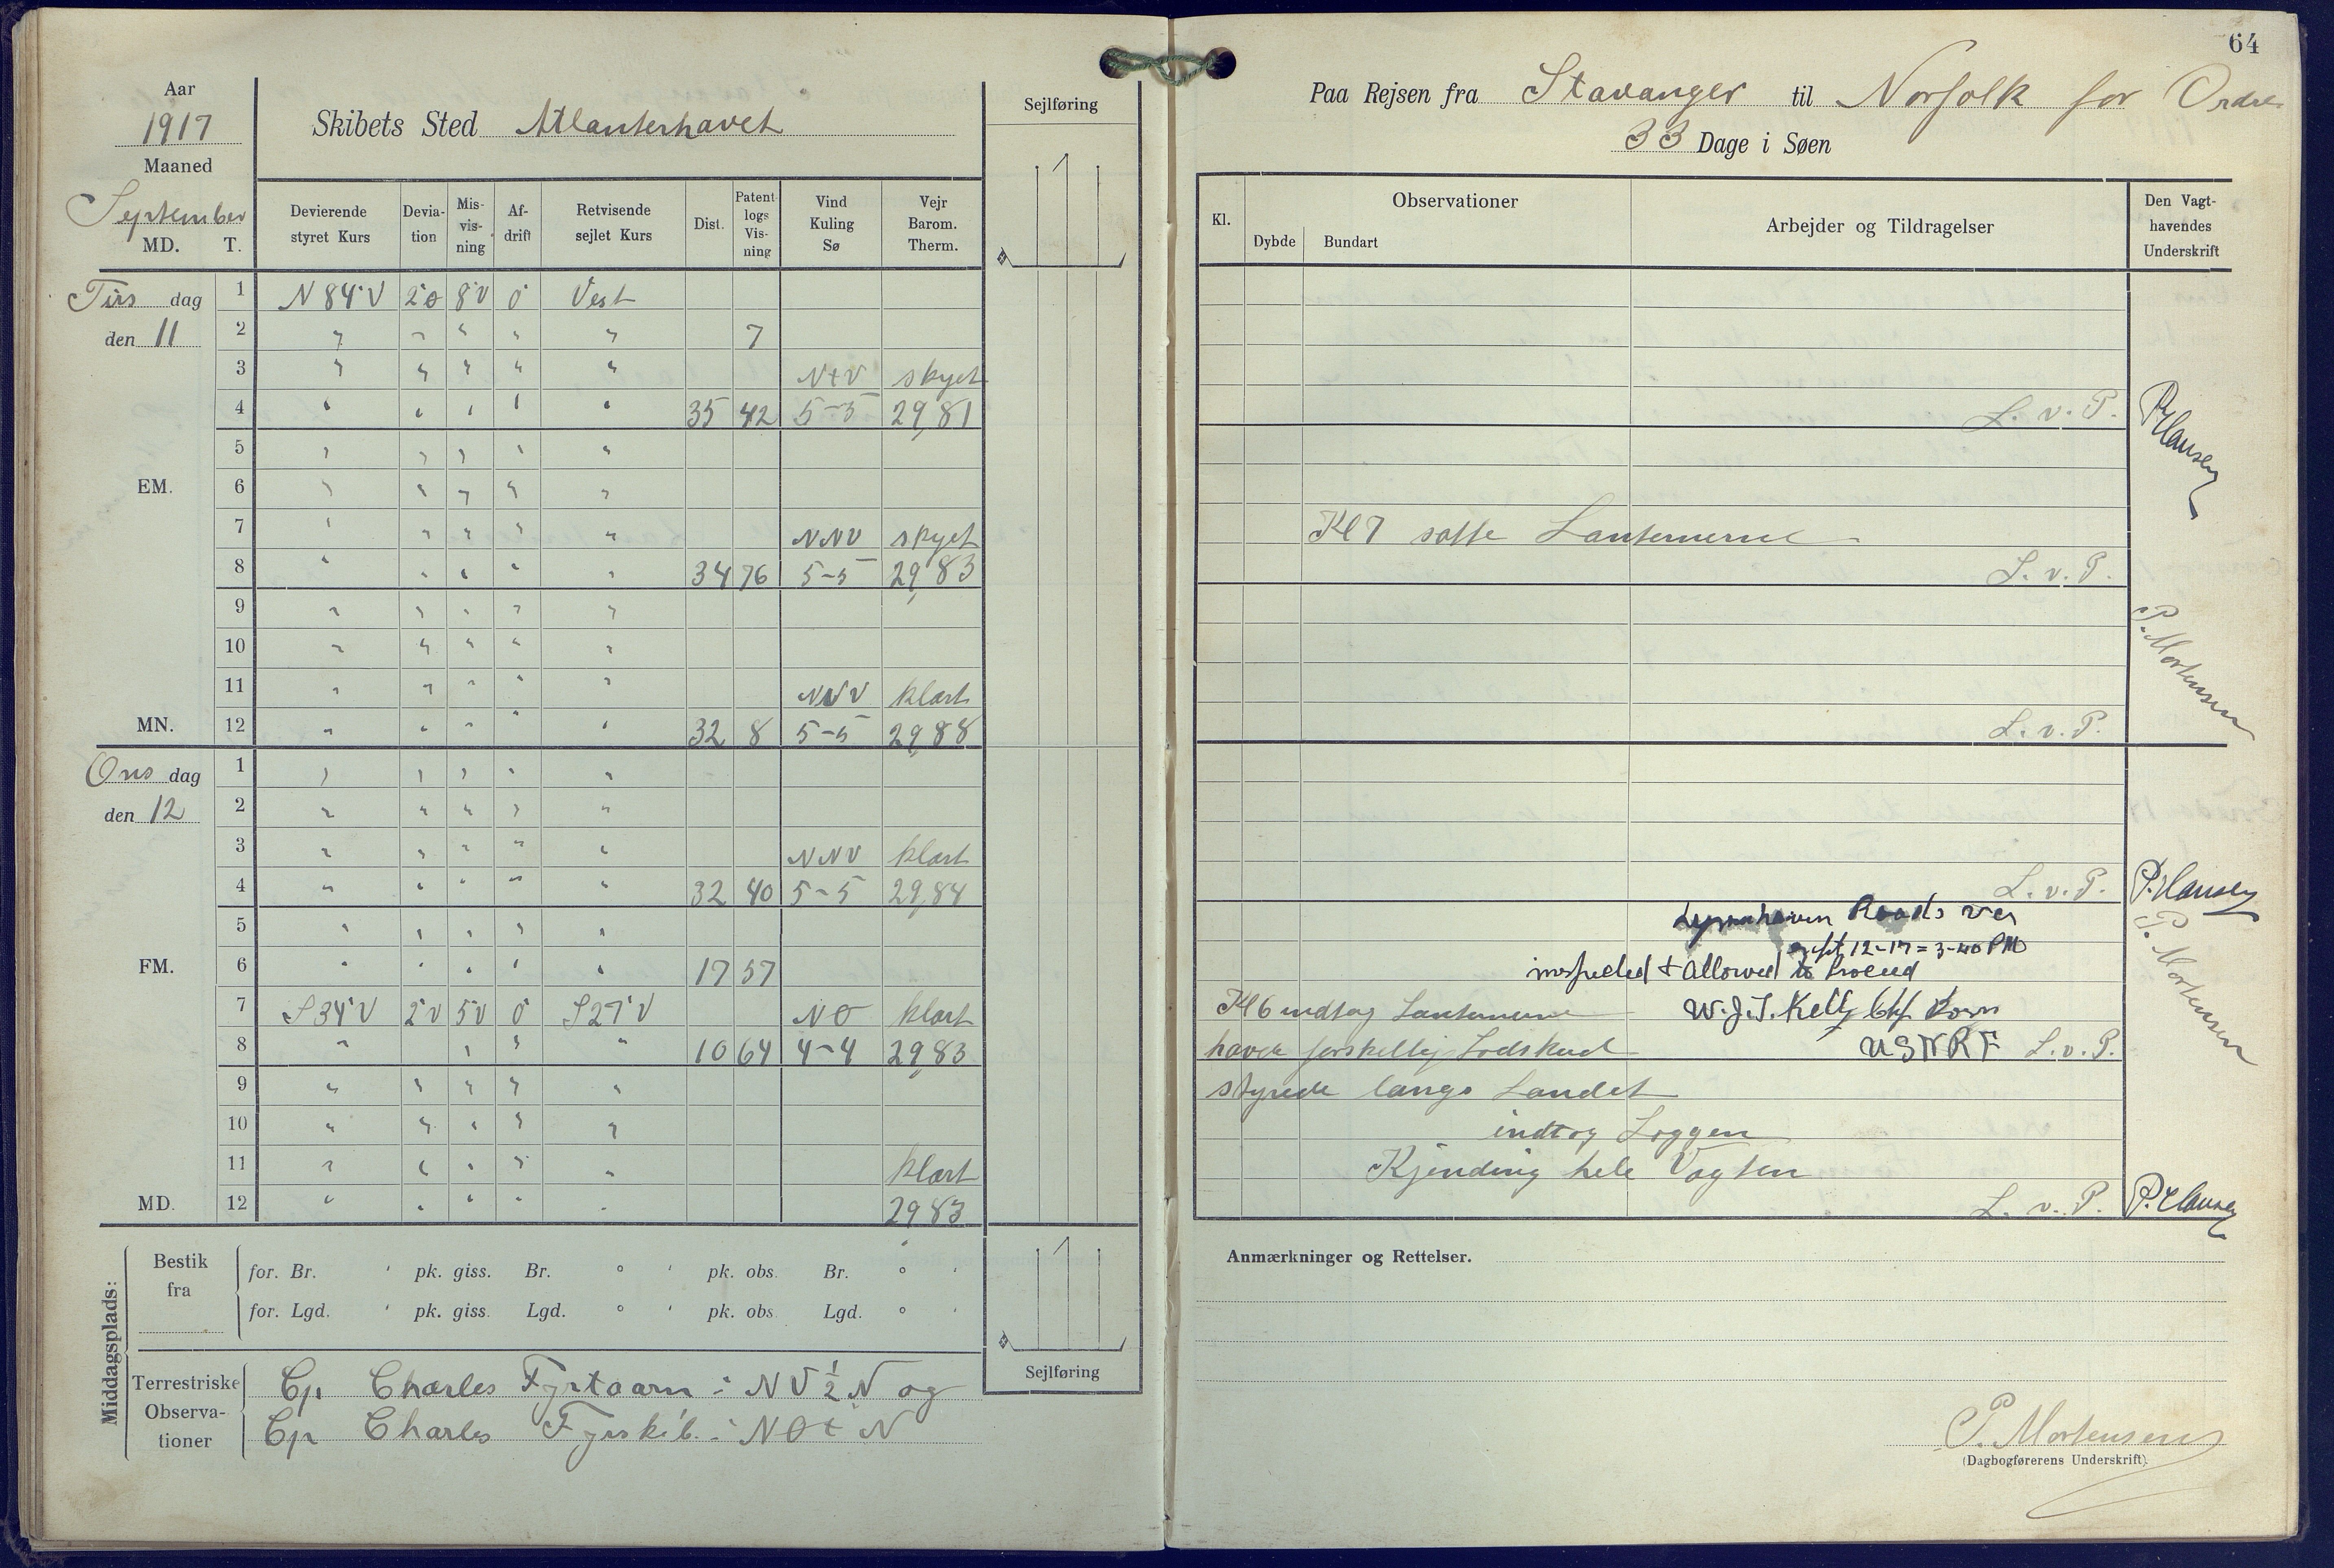 Aar
1917
Maaned
September
MD. T.
Skibets Sted Atlanterhavet
Sejlføring
Devierende styret Kurs
Deviation
Misvisning
Afdrift
Retvisende sejlet Kurs
Dist.
Patent logs Visning
Vind Kuling Sø
Vejr Barom. Therm.
Tirs dag
den 11
1 N 84° V 2°0 8°V 0° Vest
2 " " " " " 7
3 " " " " " NtV skyet
4 " " " " " 35 42 5-5 29,81
5 " " " " "
EM. 6 " " " " "
7 " " " " " NNV skyet
8 " " " " " 34 76 5-5 29,83
9 " " " " "
10 " " " " "
11 " " " " " NNV klart
MN. 12 " " " " " 32 8 5-5 29,88
Ons dag
den 12
1 " " " " "
2 " " " " "
3 " " " " " NNV klart
4 " " " " " 32 40 5-5 29,84
5 " " " " "
FM. 6 " " " " " 17 57
7 S 34° V 2°V 5°V 0° S 27° V NO klart
8 " " " " 10 64 4-4 29,83
9 " " " " "
10 " " " " "
11 " " " " " klart
MD. 12 " " " " " 29,83
Middagsplads:
Bestik fra
for. Br. ' pk. giss. Br. ° ' pk. obs. Br. ° '
for. Lgd. ' pk. giss. Lgd. ° ' pk. obs. Lgd. ° '
Terrestriske Observationer
Cp Charles Fyrtaarn i NV ½ N og
Cp Charles Fyrskib i NOtN
Sejlføring
64
Paa Rejsen fra Stavanger til Norfolk for Ordre
33 Dage i Søen
Kl.
Observationer
Dybde Bundart
Arbejder og Tildragelser
Den Vagthavendes Underskrift
L. v. P.
P. Hansen
Kl 7 satte Lanternerne
L. v. P.
P. Mortensen
L. v. P.
L. v. P. P. Hansen
Lynnhaven Roads Va
Sept 12-17 = 3-40 PM
inspected + Allowed to Proceed
Kl 6 indtog Lanternerne W.J.T. Kelly
havde forskellig Lodskud USNRF L. v. P.
P. Mortensen
styrede langs Landet
indtog Loggen
Kjending hele Vagten
L. v. P. P. Hansen
Anmærkninger og Rettelser.
P. Mortensen
(Dagbogførerens Underskrift).